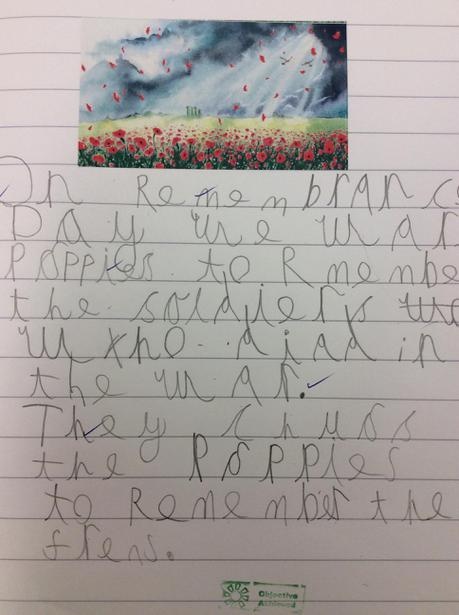 On Remembranc
Day we war
Poppies to Rmembe
the soldiers
who diad in
the war.
They chuss
the Poppies
to Remember the
frens.
Objective
Achieved